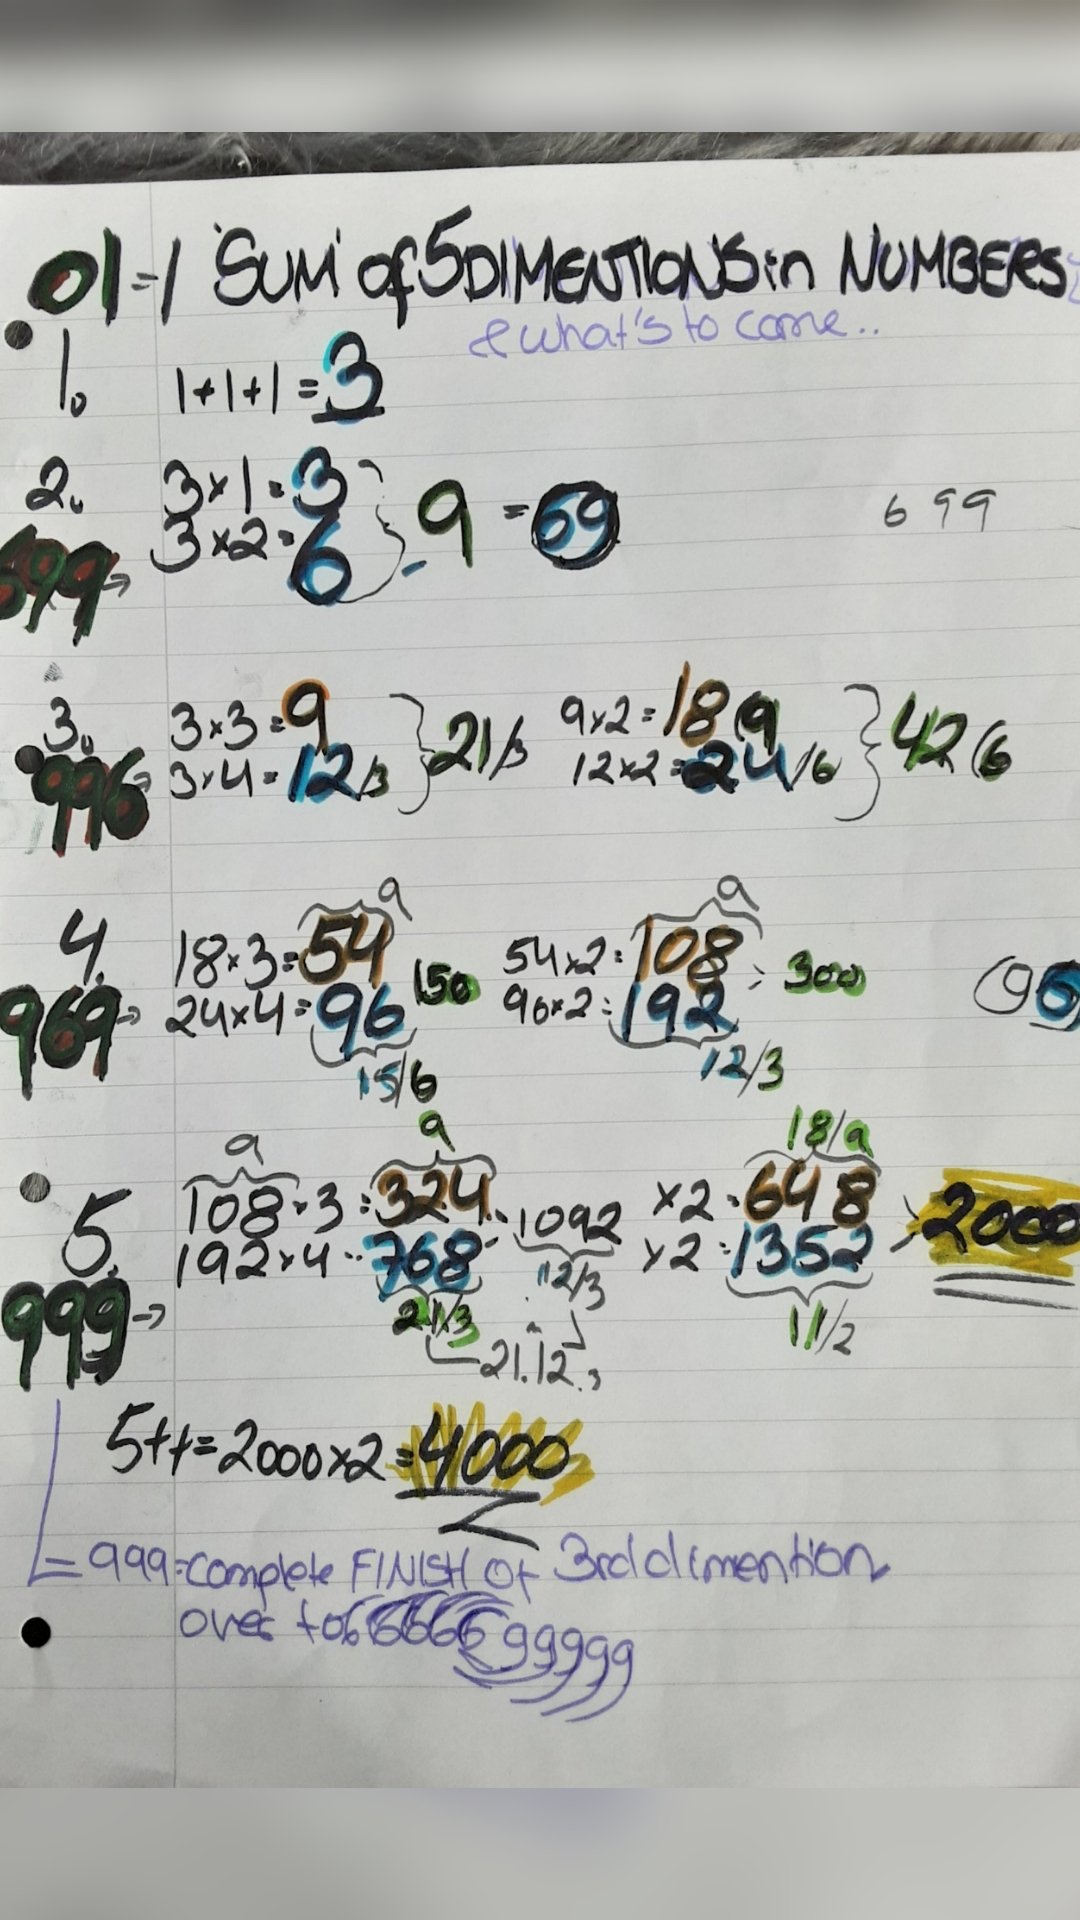 01=1 'SUM' of 5 DIMENTIONS in NUMBERS
& what's to come..
1. 1+1+1=3
2. 3×1=3
3×2=6 } 9 = 69
6 99
699→
3. 3×3=9
3×4=12/3 } 21/3
9×2=18(9
12×2=24/6 } 42(6
996→
4. 9
18×3=54
24×4=96 150
15/6
9
54×2=108
96×2=192 300
12/3
(96
969→
5. 9 9
108×3=324
192×4=768 1092
21/3 12/3
21.12.3
18/9
×2=648
×2=1352 > 2000
11/2
999→
5++=2000×2=4000
=999=complete FINISH of 3rd dimention
over to 666666 99999